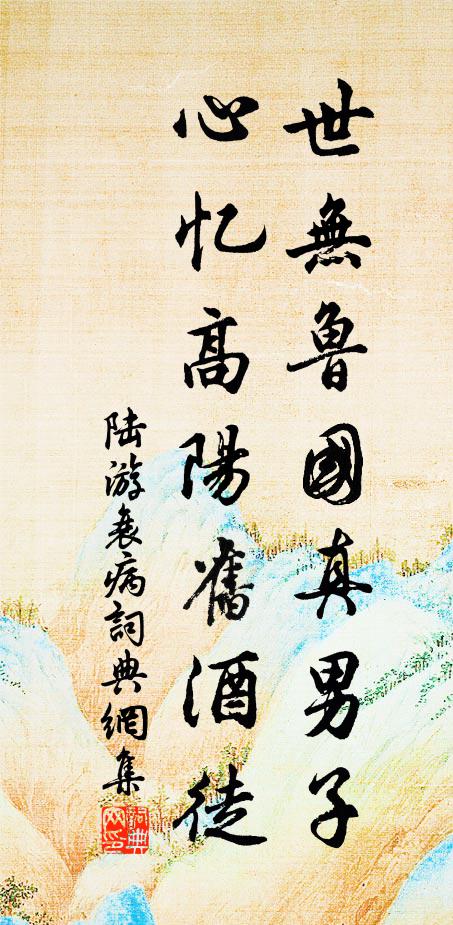 世無魯國真男子
心忆高陽舊酒徒
陆游衰病詞典網集
詞典网印